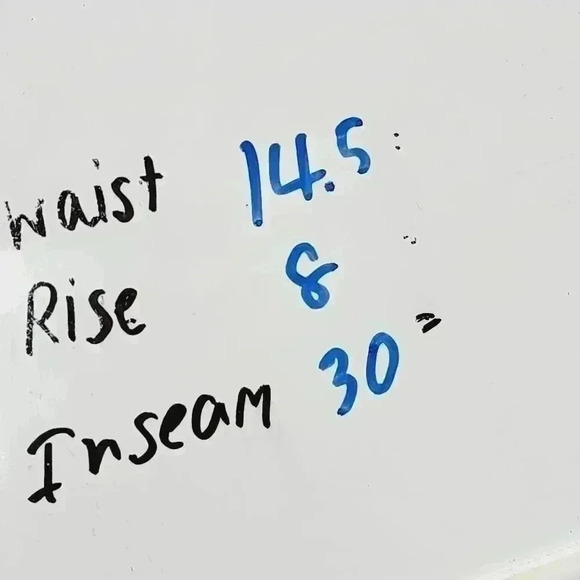 Waist 14.5"
Rise 8"
Inseam 30"